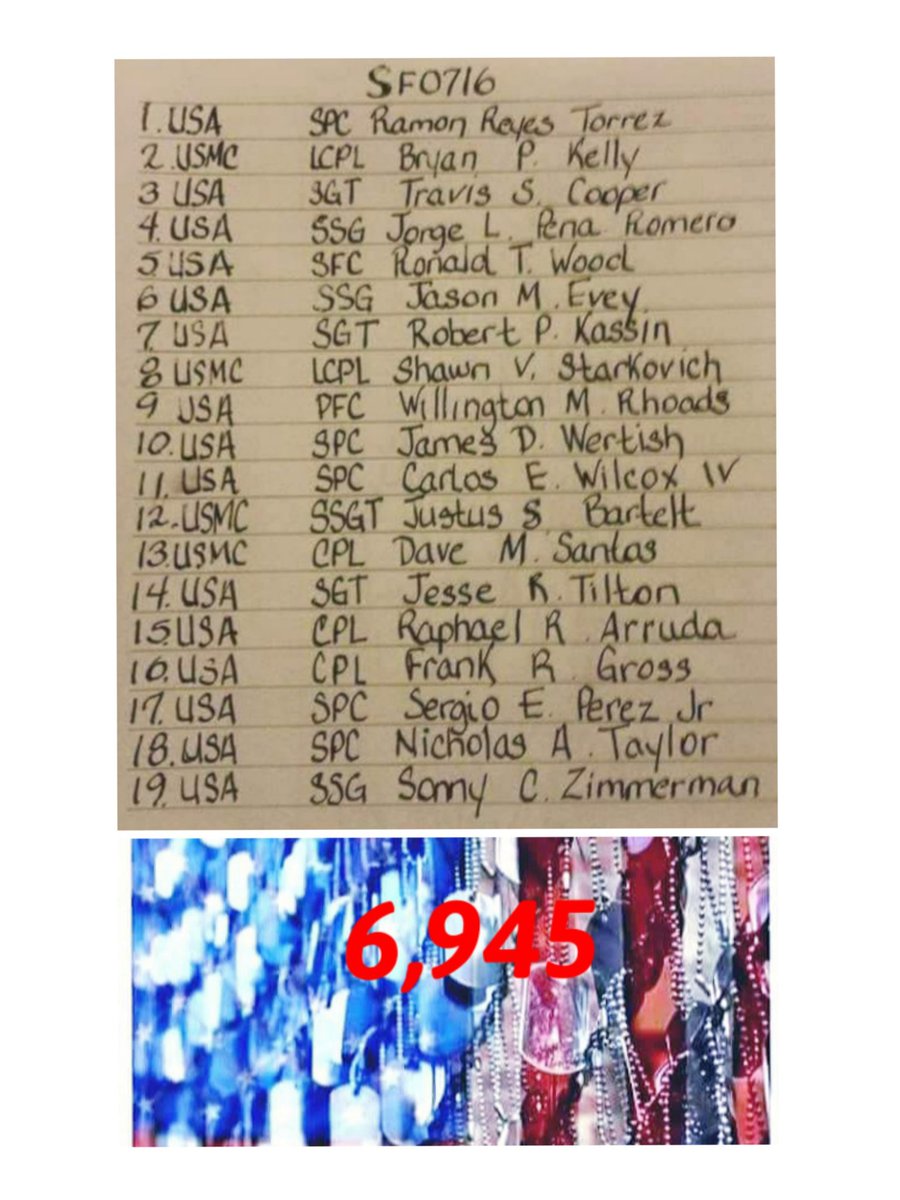 SF0716
1. USA SPC Ramon Reyes Torrez
2. USMC LCPL Bryan P. Kelly
3 USA SGT Travis S. Cooper
4. USA SSG Jorge L. Pena Romero
5 USA SFC Ronald T. Wood
6 USA SSG Jason M. Evey
7. USA SGT Robert P. Kassin
8 USMC LCPL Shawn V. Starkovich
9 USA PFC Willington M. Rhoads
10. USA SPC James D. Wertish
11. USA SPC Carlos E. Wilcox IV
12. USMC SSGT Justus S Bartelt
13. USMC CPL Dave M. Santos
14. USA SGT Jesse R. Tilton
15. USA CPL Raphael R. Arruda
16. USA CPL Frank R. Gross
17. USA SPC Sergio E. Perez Jr
18. USA SPC Nicholas A. Taylor
19. USA SSG Sonny C. Zimmerman
6,945